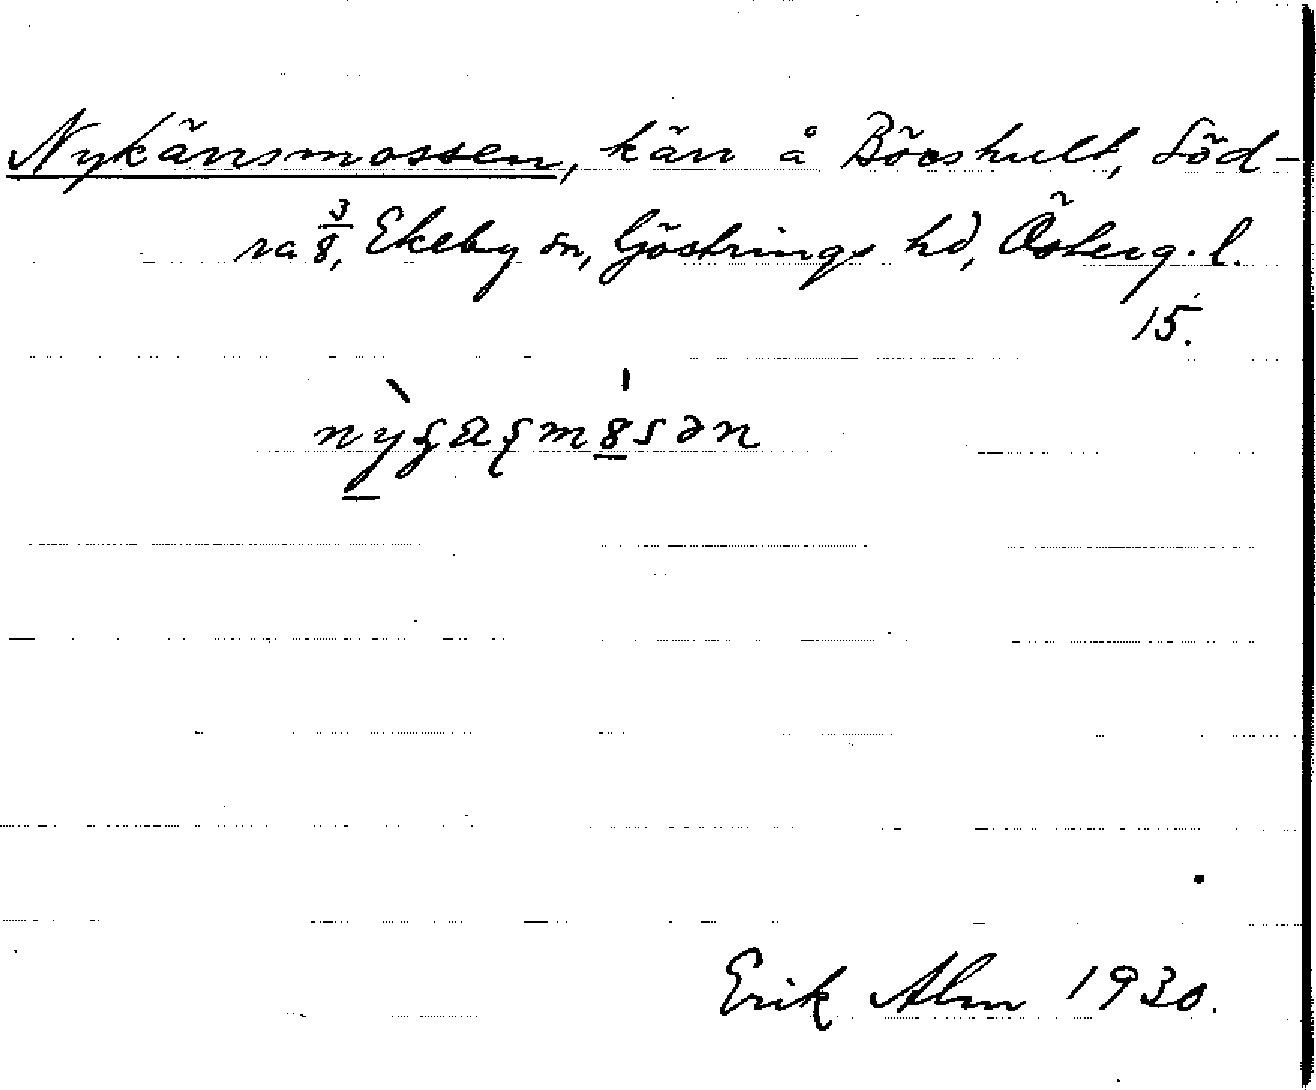 Nykärrsmossen, kärr å Börshult, Söd-
ra 3/8, Ekeby sn, Göstrings hd, Österg. l.
15.
Erik Alm 1930.